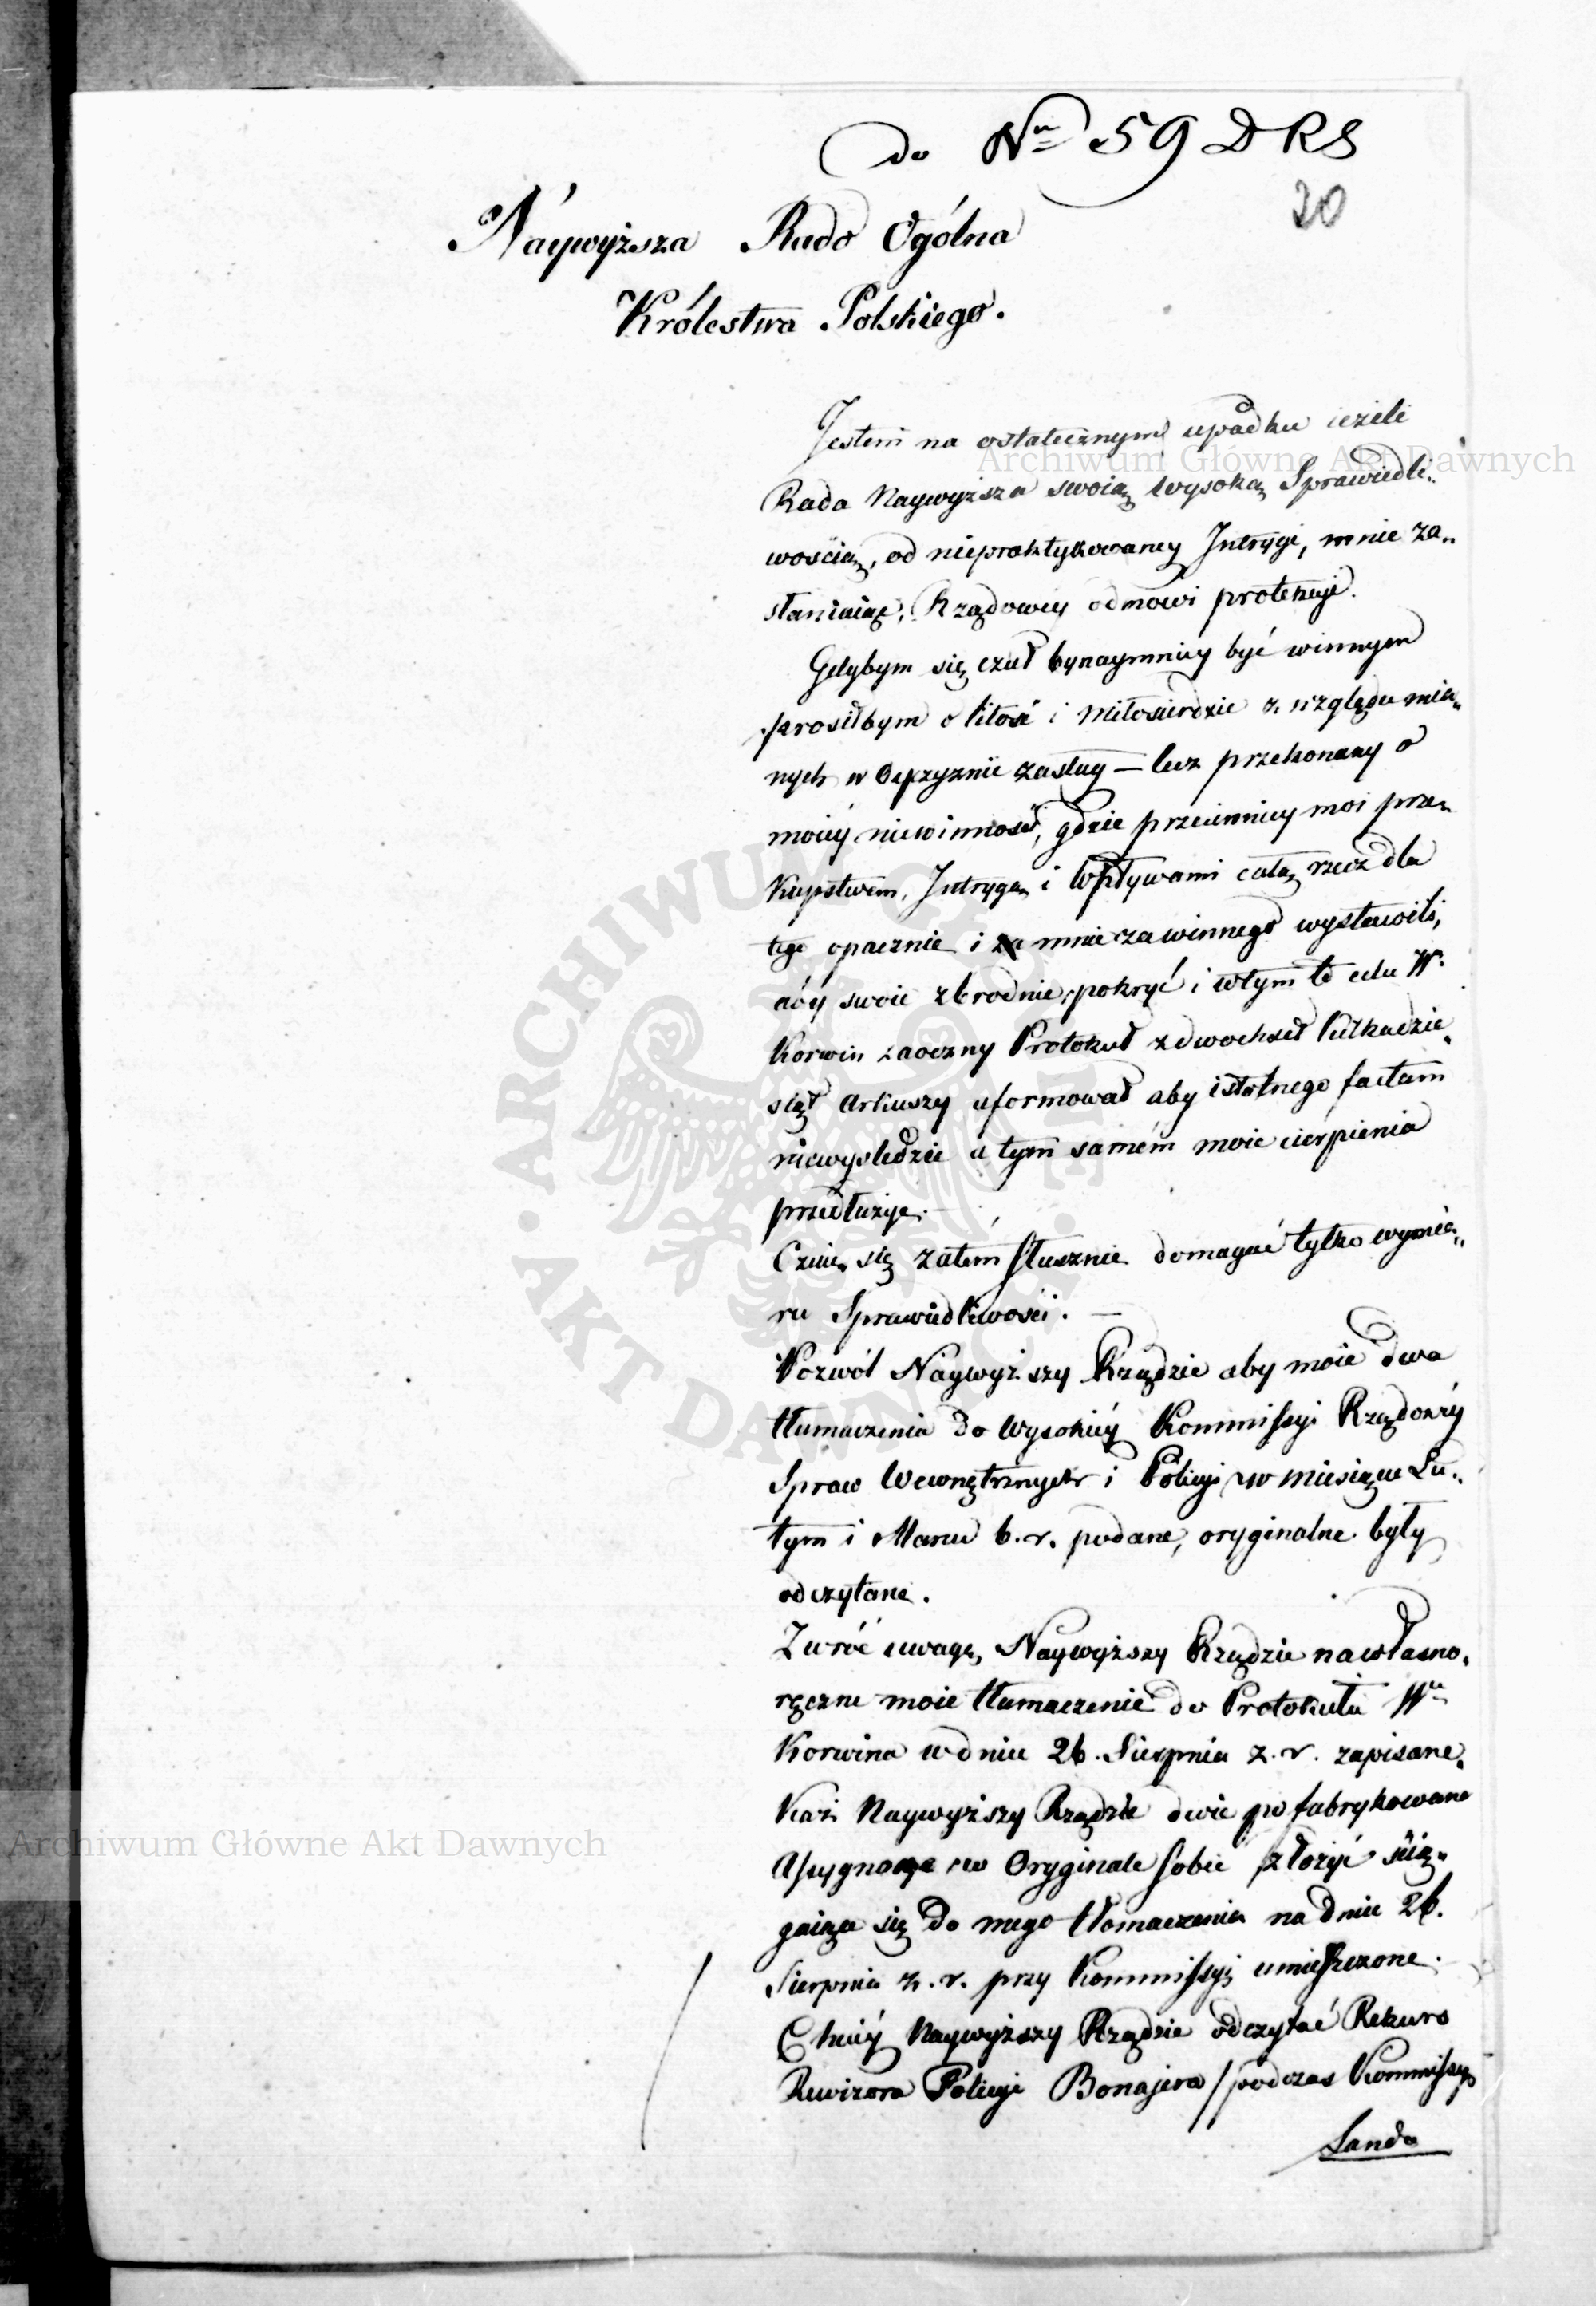 do Nro 59 DRS
20
Náywyższa Rado Ogólna
Królestwa Polskiego.
Jestem na ostatecznym upadku ieżeli
Archiwum Główne Akt Dawnych
Rada Naywyższa swoią wysoką Sprawiedli„
wością, od niepraktykowaney Intrygi, mnie za„
słaniaiąc, Rządowey odmowi protekcyi.
Gdybym się czuł bynaymniey być winnym
prosiłbym o litość i Miłosierdzie z względu mia„
nych w Oyczyznie zasług — lecz przekonany o
moiéy niewinności, gdzie przeciwnicy moi prze„
kupstwem, Intrygą i Wpływami całą rzecz dla
tego opacznie i mnie za winnego wystawili,
aby swoie zbrodnie pokryć i w tym to celu W.
Korwin zaoczny Protokuł z dwochset kilkadzie„
siąt Arkuszy uformował aby istotnego factum
niewyśledzic a tym samém moie cierpienia
przedłużyc.
Czuię się zatém słusznie domagać tylko wymia„
ru Sprawiedliwości. —
Pozwól Náywyższy Rządzie aby moie dwa
tłumaczenia do Wysokiéy Kommissyi Rządowéy
Spraw Wewnętrznych i Policyi w miesiącu Lu„
tym i Marcu b. r. podane, oryginalne były
odczytane.
Zwróć uwagę, Naywyższy Rządzie na własno„
ręczne moie tłumaczenie do Protokułu Wo
Korwina w dniu 26. Sierpnia z. r. zapisane.
Każ Naywyższy Rządzie dwie pofabrykowane
Assygnacye w Oryginale sobie złożyć ścią„
gaiące się do mego tłomaczenia na dniu 26.
Sierpnia z. r. przy Kommissyi umieszczone.
Chciéy Naywyższy Rządzie odczytać Rekurs
Rewizora Policyi Bonajera / podczas Kommissyi
Sanda
Archiwum Główne Akt Dawnych
ARCHIWUM GŁÓWNE · AKT DAWNYCH ·